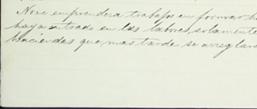 No se emprenderá trabajo en formar h
haya entrado en las labores, solamente
haciendas que mas tarde se arreglará